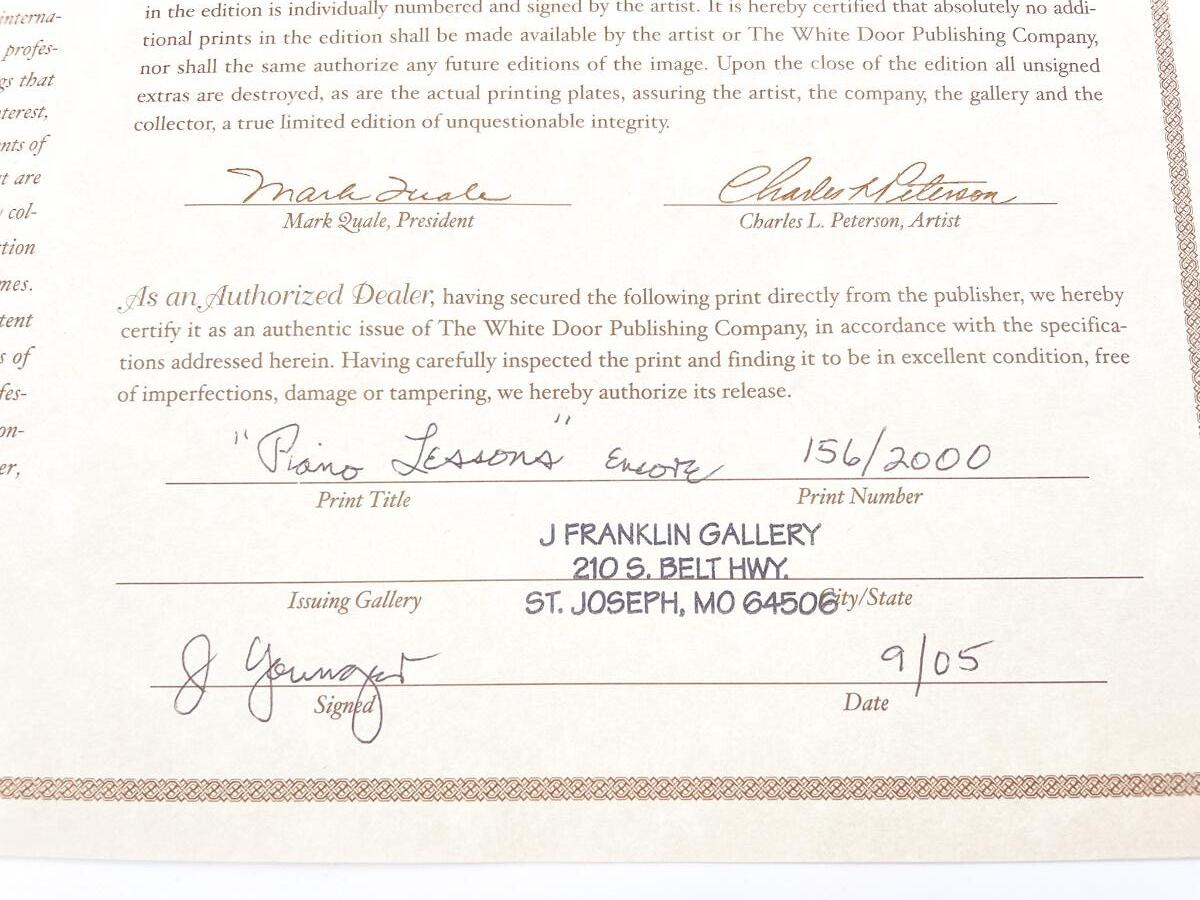 interna-
profes-
gs that
terest,
nts of
t are
col-
tion
mes.
tent
s of
fes-
on-
er,
in the edition is individually numbered and signed by the artist. It is hereby certified that absolutely no addi-
tional prints in the edition shall be made available by the artist or The White Door Publishing Company,
nor shall the same authorize any future editions of the image. Upon the close of the edition all unsigned
extras are destroyed, as are the actual printing plates, assuring the artist, the company, the gallery and the
collector, a true limited edition of unquestionable integrity.
Mark Quale Charles L Peterson
Mark Quale, President Charles L. Peterson, Artist
As an Authorized Dealer, having secured the following print directly from the publisher, we hereby
certify it as an authentic issue of The White Door Publishing Company, in accordance with the specifica-
tions addressed herein. Having carefully inspected the print and finding it to be in excellent condition, free
of imperfections, damage or tampering, we hereby authorize its release.
"Piano Lessons" Encore 156/2000
Print Title Print Number
J FRANKLIN GALLERY
210 S. BELT HWY.
Issuing Gallery ST. JOSEPH, MO 64506 City/State
J 9/05
Signed Date